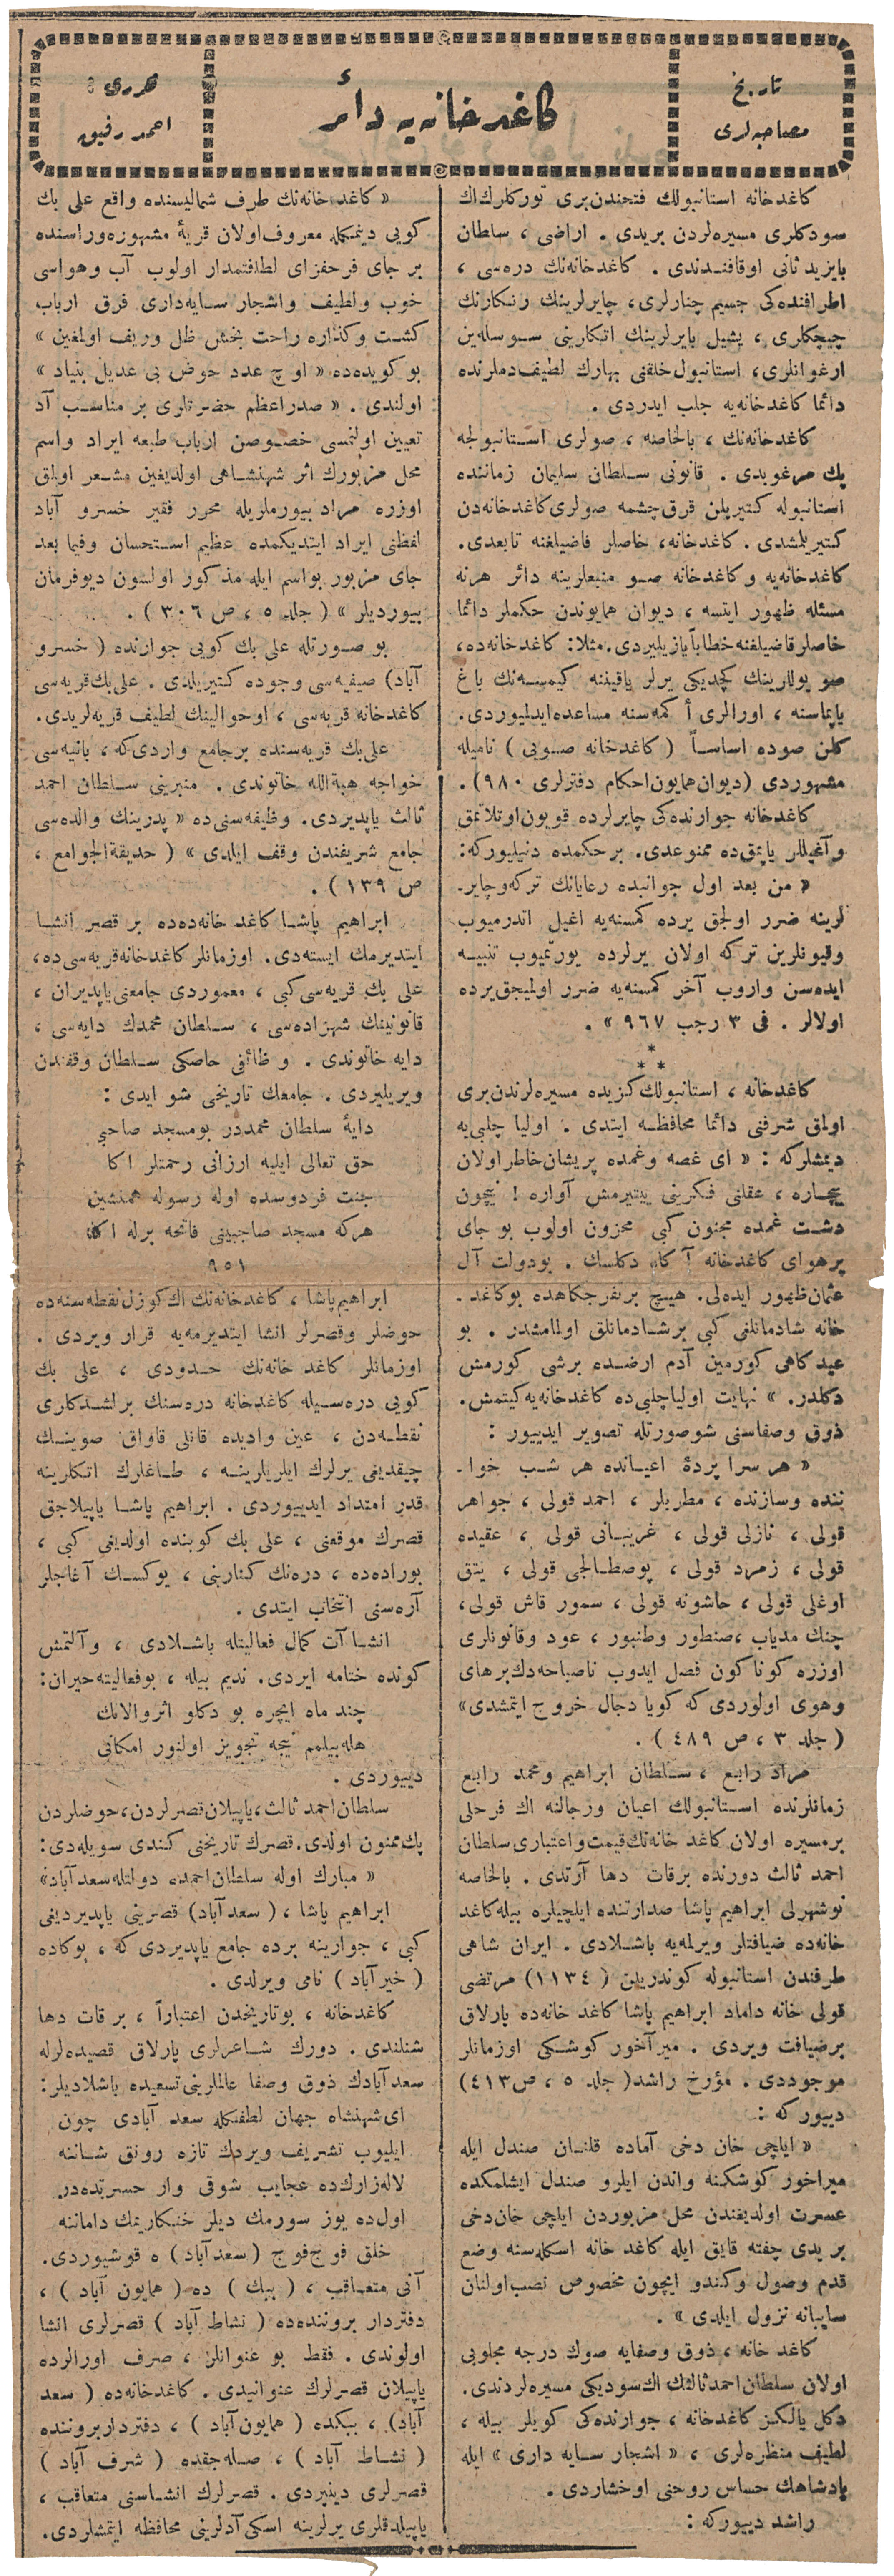 تاريخ
مصاحبه‌لرى
كاغدخانه‌يه دائر
محررى :
احمد رفيق
كاغدخانه استانبولك فتحندن‌برى توركلرك اك
سودكلرى مسيره‌لردن بريدى . اراضى ، سلطان
بايزيد ثانى اوقافنــدندى . كاغدخانه‌نك دره‌سى ،
اطرافنده‌كى جسيم چنارلرى، چايرلرينك رنكارنك
چيچكلرى ، يشيل بايرلرينك اتكلرينى ســوسله‌ين
ارغوانلرى، استانبول خلقنى بهارك لطيف دملرنده
دائما كاغدخانه‌يه جلب ايدردى .
كاغدخانه‌نك ، بالخاصه ، صولرى اســتانبولجه
پك مرغوبدى . قانونى ســلطان سليمان زماننده
استانبوله كتيريلن قرق‌چشمه صولرى كاغدخانه‌دن
كتيريلمشدى . كاغدخانه، خاصلر قاضيلغنه تابعدى.
كاغدخانه‌يه وكاغدخانه صــو منبعلرينه دائر هرنه
مسئله ظهور ايتسه ، ديوان همايوندن حكملر دائما
خاصلر قاضيلغنه خطاباً يازيليردى. مثلا: كاغدخانه‌ده،
صو يوللرينك كچديكى يرلر ياقيننه كيمســه‌نك باغ
ياپماسنه ، اورالرى أ كمه‌سنه مساعده ايدلميوردى.
كلن صوده اساســاً (كاغدخانه صــويى) ناميله
مشهوردى (ديوان همايون احكام دفترلرى ٩٨٠).
كاغدخانه جوارنده‌كى چايرلرده قويون اوتلاتمق
وآغيللر ياپمق‌ده ممنوعدى. برحكمده دنيليوركه:
« من بعد اول جوانبده رعايانك تركه وچاير-
لرينه ضرر اولجق يرده كمسنه‌يه اغيل اندرميوب
وقيونلرين تركه اولان يرلرده يورتميوب تنبيــه
ايده‌سن واروب آخر كمسنه‌يه ضرر اولميجق يرده
اولالر . فى ٣ رجب ٩٦٧ » .
* * *
كاغدخانه ، استانبولك گزيده مسيره‌لرندن‌برى
اولمق شرفنى دائما محافظــه ايتدى . اوليا چلبى‌يه
ديمشلركه : « اى غصه وغمده پريشان خاطر اولان
بيچــاره ، عقلنى فكرينى ييتيرمش آواره ! نيچون
دشــت غمده مجنون كبى محزون اولوب بو جاى
پرهواى كاغدخانه آ كاه دكلسك . بودولت آل
عثمان ظهور ايده‌لى. هيچ برتفرجگاهده بوكاغد-
خانه شادمانلغى كبى برشــادمانلق اولمامشدر . بو
عيدگاهى كورمين آدم ارضــده برشى كورمش
دكلدر. » نهايت اولياچلبى‌ده كاغدخانه‌يه كيتمش.
ذوق وصفاسنى شوصورتله تصوير ايدييور :
« هر سرا پردۀ اعيــانده هر شــب خوا-
ننده وسازنده ، مطربلر ، احمد قولى ، جواهر
قولى ، نازلى قولى ، غريبــانى قولى ، عقيده
قولى ، زمرد قولى ، پوصطــالجى قولى ، يتق
اوغلى قولى ، حاشونه قولى ، سمور قاش قولى،
چنك مدياب ، صنطور وطنبور ، عود وقانونلرى
اوزره كوناكون فصل ايدوب تاصباحه‌دك برهاى
وهوى اولوردى كه كويا دجال خروج ايتمشدى»
(جلد ٣ ، ص ٤٨٩) .
مراد رابــع ، ســلطان ابراهيم ومحمد رابــع
زمانلرنده اســتانبولك اعيان ورجالنه اك فرحلى
برمسيره اولان كاغد خانه‌نك قيمت واعتبارى سلطان
احمد ثالث دورنده برقات دها آرتدى . بالخاصه
نوشهرلى ابراهيم پاشا صدارتنده ايلچيلره بيله كاغد
خانه‌ده ضيافتلر ويرلمه‌يه باشــلادى . ايران شاهى
طرفندن استانبوله كوندريلن (١١٣٤) مرتضى
قولى خانه داماد ابراهيم پاشا كاغد خانه‌ده پارلاق
برضيافت ويردى . ميرآخور كوشــكى اوزمانلر
موجوددى . مؤرخ راشد (جلد ٥ ، ص ٤١٣)
دييوركه :
« ايلچى خان دخى آماده قلنــان صندل ايله
ميراخور كوشكنه واندن ايلرو صندل ايشلمكده
عسرت اولديغندن محل مزبوردن ايلچى خان دخى
بر يدى چفته قايق ايله كاغد خانه اسكله‌سنه وضع
قدم وصول وكندو ايچون مخصوص نصب اولنان
سايبانه نزول ايلدى » .
كاغد خانه ، ذوق وصفايه صوك درجه مجلوبى
اولان سلطان احمد ثالثك اك سوديكى مسيره‌لردندى.
دكل يالكز كاغدخانه ، جوارنده‌كى كويلر بيله ،
لطيف منظره‌لرى ، « اشجار ســايه دارى » ايله
پادشاهك حساس روحنى اوخشاردى .
راشد دييوركه :
« كاغدخانه‌نك طرف شماليسنده واقع على بك
كويى ديمكله معروف اولان قريۀ مشهوره‌وراسنده
بر جاى فرحفزاى لطافتمدار اولوب آب وهواسى
خوب ولطيف واشجار ســايه‌دارى فرق ارباب
كشــت وكذاره راحت بخش ظل وريف اولمغين »
بو كويده‌ده « اوچ عدد حوض بى عديل بنياد »
اولندى . « صدراعظم حضرتلرى بر مناســب آد
تعيين اولنمسى خصــوصن ارباب طبعه ايراد واسم
محل مزبورك اثر شهنشــاهى اولديغين مشــعر اولمق
اوزره مراد بيورملريله محرر فقير خسرو آباد
لفظنى ايراد ايتديكمده عظيم اســتحسان وفيما بعد
جاى مزبور بواسم ايله مذكور اولسون ديو فرمان
بيورديلر » (جلد ٥ ، ص ٣٠٦) .
بو صــورتله على بك كويى جوارنده ( خسرو
آباد) صيفيه‌سى وجوده كتيريلدى . على‌بك قريه‌سى
كاغدخانه قريه‌سى ، اوحوالينك لطيف قريه‌لريدى.
على‌بك قريه‌سنده برجامع واردى‌كه ، بانيه‌سى
خواجه هبةالله خاتوندى . منبرينى ســلطان احمد
ثالث ياپديردى. وظيفه‌سنى‌ده « پدرينك والده‌سى
جامع شريفندن وقف ايلدى » ( حديقةالجوامع ،
ص ١٣٩) .
ابراهيم پاشــا كاغد خانه‌ده‌ده بر قصر انشــا
ايتديرمك ايسته‌دى. اوزمانلر كاغدخانه قريه‌سى‌ده،
على بك قريه‌سى كبى ، معموردى جامعنى ياپديران ،
قانونينك شهزاده‌سى ، ســلطان محمدك دايه‌سى ،
دايه خاتوندى . وظائفى خاصكى ســلطان وقفندن
ويريليردى . جامعك تاريخى شو ايدى :
دايۀ سلطان محمددر بومسجد صاحبى
حق تعالى ايليه ارزانى رحمتلر اكا
جنت فردوسده اوله رسوله همنشين
هركه مسجد صاحبينى فاتحه برله اكا
٩٥١
ابراهيم پاشا ، كاغدخانه‌نك اك كوزل نقطه‌سنه‌ده
حوضلر وقصرلر انشا ايتديرمه‌يه قرار ويردى .
اوزمانلر كاغد خانه‌نك حــدودى ، على بك
كويى دره‌ســيله كاغدخانه دره‌سنك برلشــدكلرى
نقطــه‌دن ، عين واديده قانلى قاواق صوينــك
چيقديغى يرلرك ايلريلرينــه ، طــاغلرك اتكلرينه
قدر امتداد ايدييوردى . ابراهيم پاشــا ياپيلاجق
قصرك موقعنى ، على بك كوينده اولديغى كبى ،
بوراده‌ده ، دره‌نك كنارينى ، يوكســك آغاجلر
آره‌سنى انتخاب ايتدى .
انشــاآت كمال فعاليتله باشــلادى ، وآلتمش
كونده ختامه ايردى. نديم بيله ، بوفعاليته حيران:
چند ماه ايچره بو دكلو اثر والانك
هله بيلمم نيجه تجويز اولنور امكانى
دييوردى .
سلطان احمد ثالث، ياپيلان قصرلردن، حوضلردن
پك ممنون اولدى. قصرك تاريخنى كندى سويله‌دى:
« مبارك اوله سلطان احمده دولتله سعدآباد»
ابراهيم پاشا ، (سعدآباد) قصرينى ياپديرديغى
كبى ، جوارينه برده جامع ياپديردى كه ، بوكاده
( خيرآباد ) نامى ويرلدى .
كاغدخانه ، بوتاريخدن اعتباراً ، بر قات دها
شنلندى . دورك شــاعرلرى پارلاق قصيده‌لرله
سعدآبادك ذوق وصفا عالملرينى تسعيده باشلاديلر:
اى شهنشاه جهان لطفكله سعد آبادى چون
ايليوب تشريف ويردك تازه رونق شــاننه
لاله‌زارك‌ده عجايب شوقى وار حسرتده‌در
اول‌ده يوز سورمك ديلر خنكارينك داماننه
خلق فوج فوج (سعدآباد)ه قوشيوردى.
آنى متعــاقب ، ( ببك ) ده ( همايون آباد ) ،
دفتردار بروننده‌ده ( نشاط آباد ) قصرلرى انشا
اولوندى . فقط بو عنوانلر ، صرف اورالرده
ياپيلان قصرلرك عنوانيدى . كاغدخانه‌ده ( سعد
آباد) ، ببكده ( همايون آباد ) ، دفتردار بروننده
( نشــاط آباد ) ، صــله‌جقده ( شرف آباد )
قصرلرى دينيردى . قصرلرك انشــاسنى متعاقب ،
ياپيلدقلرى يرلرينه اسكى آدلرينى محافظه ايتمشلردى.